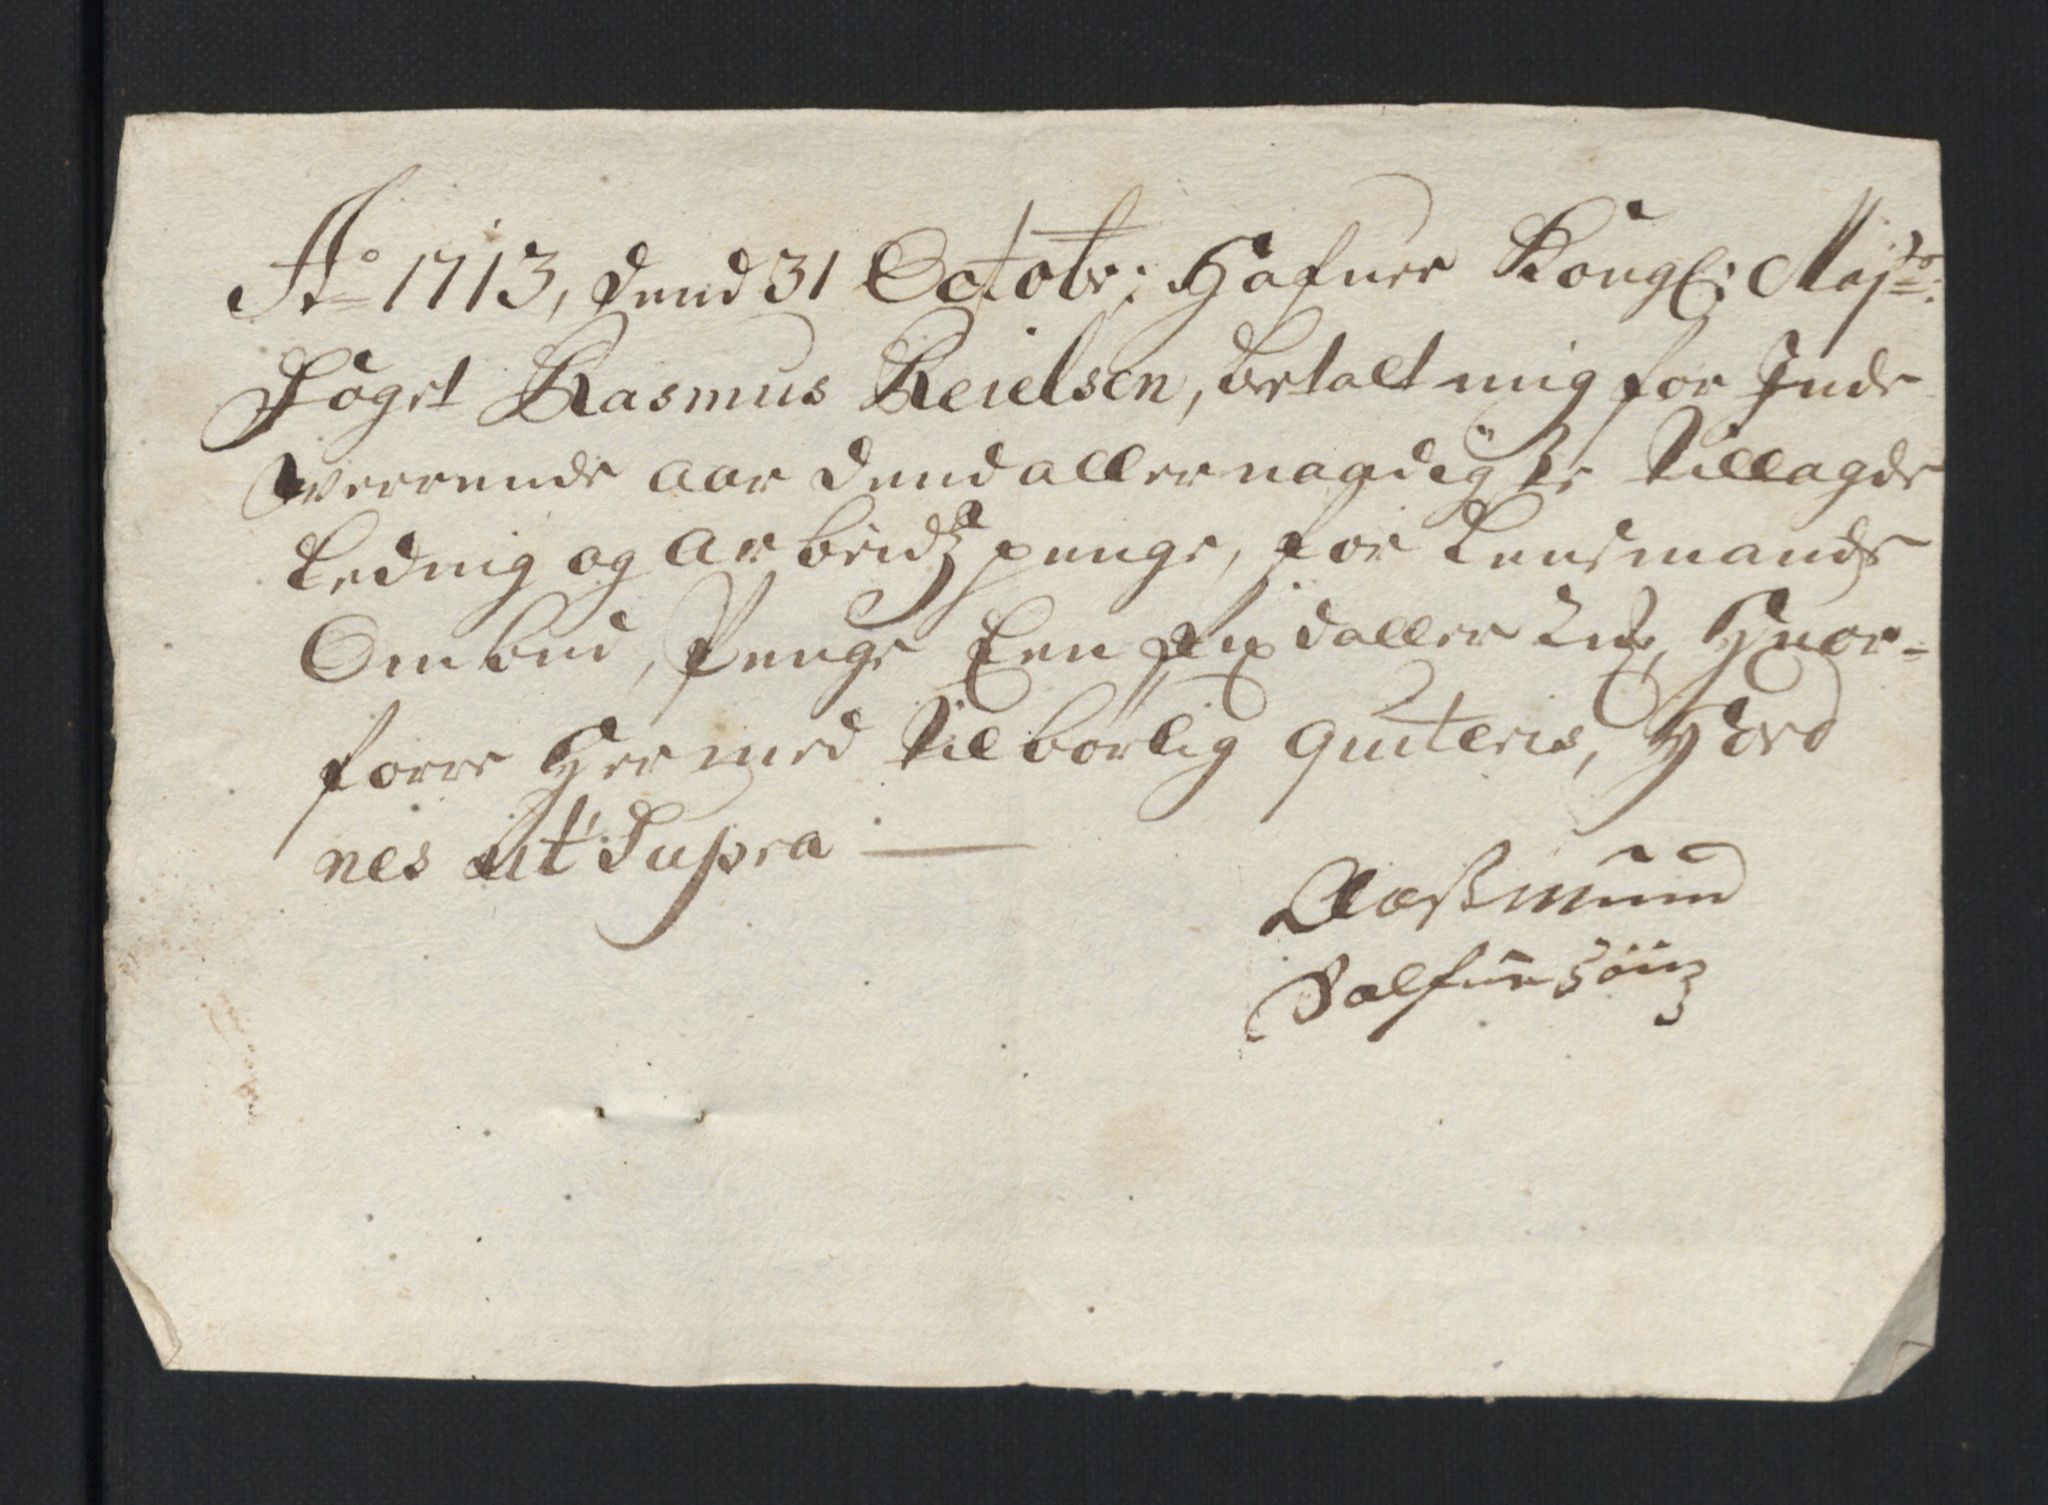 Ao 1713, dend 31 Octobr: Hafuer Kongl: Majts:
Foget Rasmus Keielsen, betalt mig for Inde
werrende aar dend allernaadigste tillagde
Lednig og arbeidtz penge, for Lensmands
Ombud, Penge Een Rixdaller Huor-
forre Hermed tilbørlig quiteris, Hord
nes Ut Supra
Aaßmund